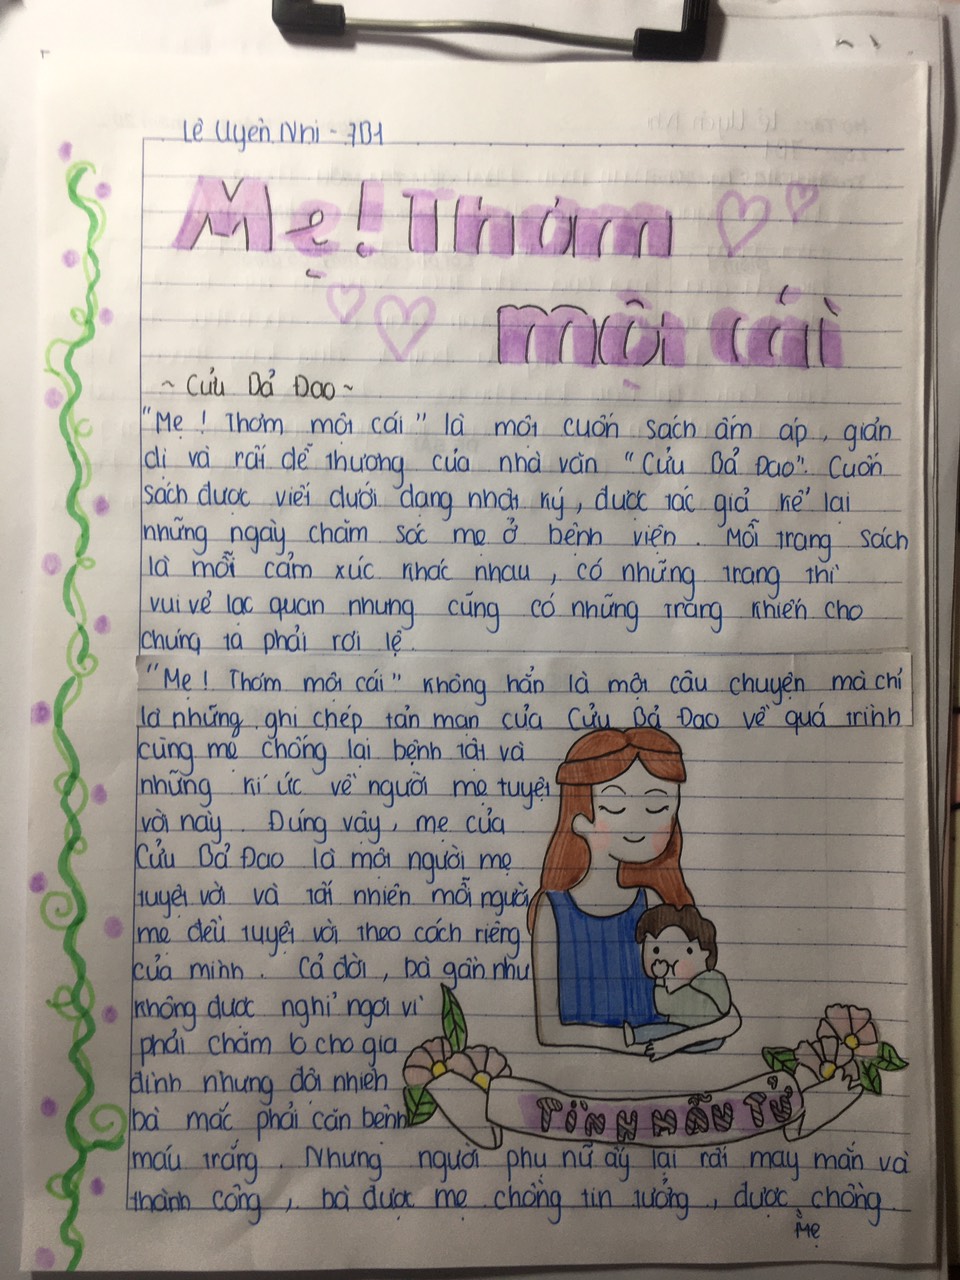 Lê Uyên Nhi - 7B1
Mẹ! Thơm
một cái
~ Cửu Bả Đao ~
"Mẹ! Thơm một cái" là một cuốn sách ấm áp, giản
dị và rất dễ thương của nhà văn "Cửu Bả Đao". Cuốn
sách được viết dưới dạng nhật ký, được tác giả kể lại
những ngày chăm sóc mẹ ở bệnh viện. Mỗi trang sách
là mỗi cảm xúc khác nhau, có những trang thì
vui vẻ lạc quan nhưng cũng có những trang khiến cho
chúng ta phải rơi lệ.
"Mẹ! Thơm một cái" không hẳn là một câu chuyện mà chỉ
là những ghi chép tản mạn của Cửu Bả Đao về quá trình
cùng mẹ chống lại bệnh tật và
những kí ức về người mẹ tuyệt
vời này. Đúng vậy, mẹ của
Cửu Bả Đao là một người mẹ
tuyệt vời và tất nhiên mỗi người
mẹ đều tuyệt vời theo cách riêng
của mình. Cả đời, bà gần như
không được nghỉ ngơi vì
phải chăm lo cho gia
đình nhưng đột nhiên
bà mắc phải căn bệnh
máu trắng. Nhưng người phụ nữ ấy lại rất may mắn và
thành công, bà được mẹ chồng tin tưởng, được chồng
Mẹ
TÌNH MẪU TỬ